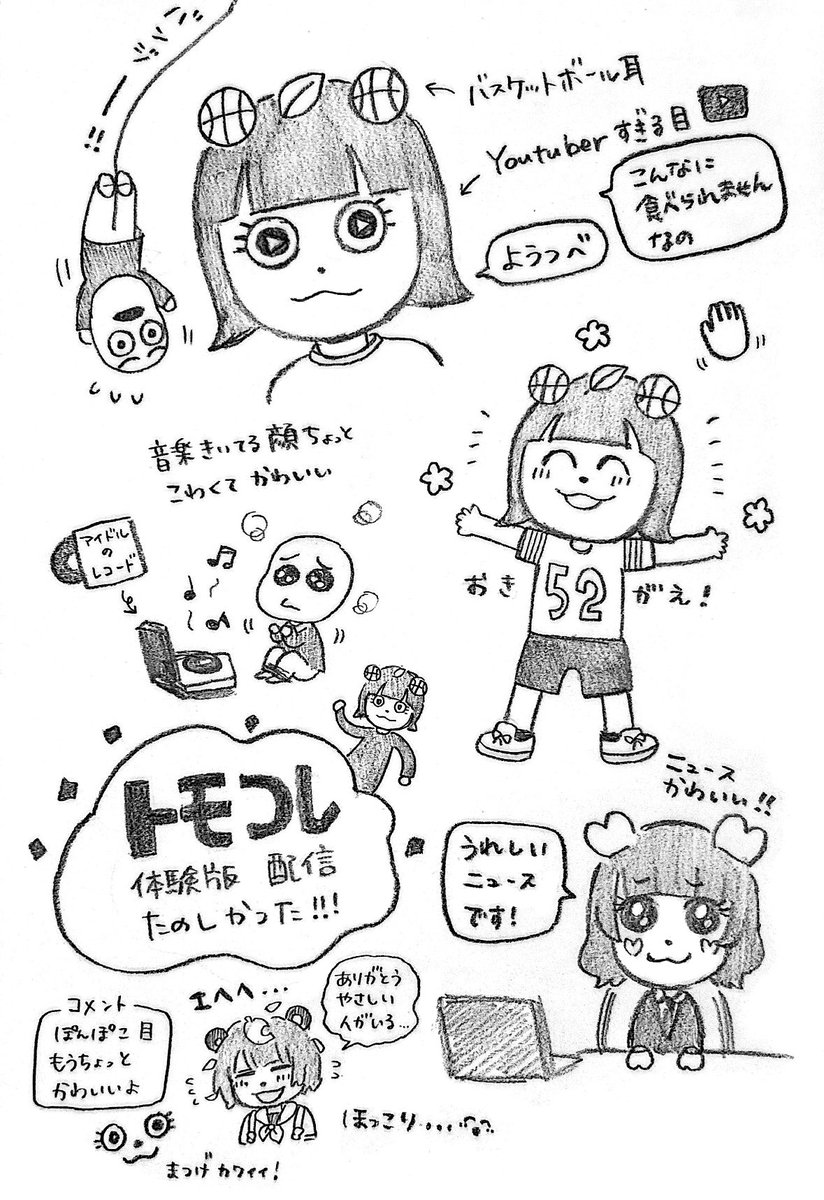 ジジジーー!!
バスケットボール耳
Youtuberすぎる目
こんなに
食べられません
なの
ようつべ
音楽きいてる顔ちょっと
こわくてかわいい
アイドル
の
レコード
おきがえ!
52
トモコレ
体験版 配信
たのしかった!!!
ニュース
かわいい!!
うれしい
ニュース
です!
コメント
ぽんぽこ目
もうちょっと
かわいいよ
エヘヘ...
ありがとう
やさしい
人がいる...
ほっこり....
まつげカワイイ!